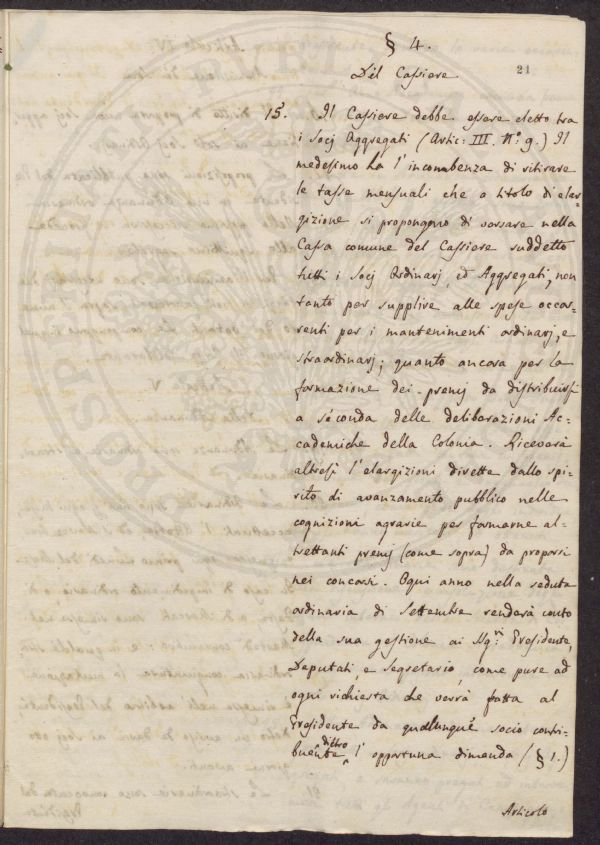 § 4.
21
Del Cassiere
15. Il Cassiere debbe essere eletto tra
i Socj Aggregati (Artic: III. N.º 9.) Il
medesimo ha l'incombenza di ritirare
le tasse mensuali che a titolo di elar-
gizione si propongono di versare nella
Cassa comune del Cassiere suddetto
tutti i Socj Ordinarj, ed Aggregati, non
tanto per supplire alle spese occor-
renti per i mantenimenti ordinarj, e
straordinarj; quanto ancora per la
formazione dei premj da distribuirsi
a seconda delle deliberazioni Ac-
cademiche della Colonia. Riceverà
altresì l'elargizioni dirette dallo spi-
rito di avanzamento pubblico nelle
cognizioni agrarie per formarne al-
trettanti premj (come sopra) da proporsi
nei concorsi. Ogni anno nella seduta
ordinaria di Settembre renderà conto
della sua gestione ai Sig.ri Presidente,
Deputati, e Segretario, come pure ad
ogni richiesta che verrà fatta al
Presidente da qualunque socio contri-
buente dietro l'opportuna dimanda (§ 1.)
Articolo